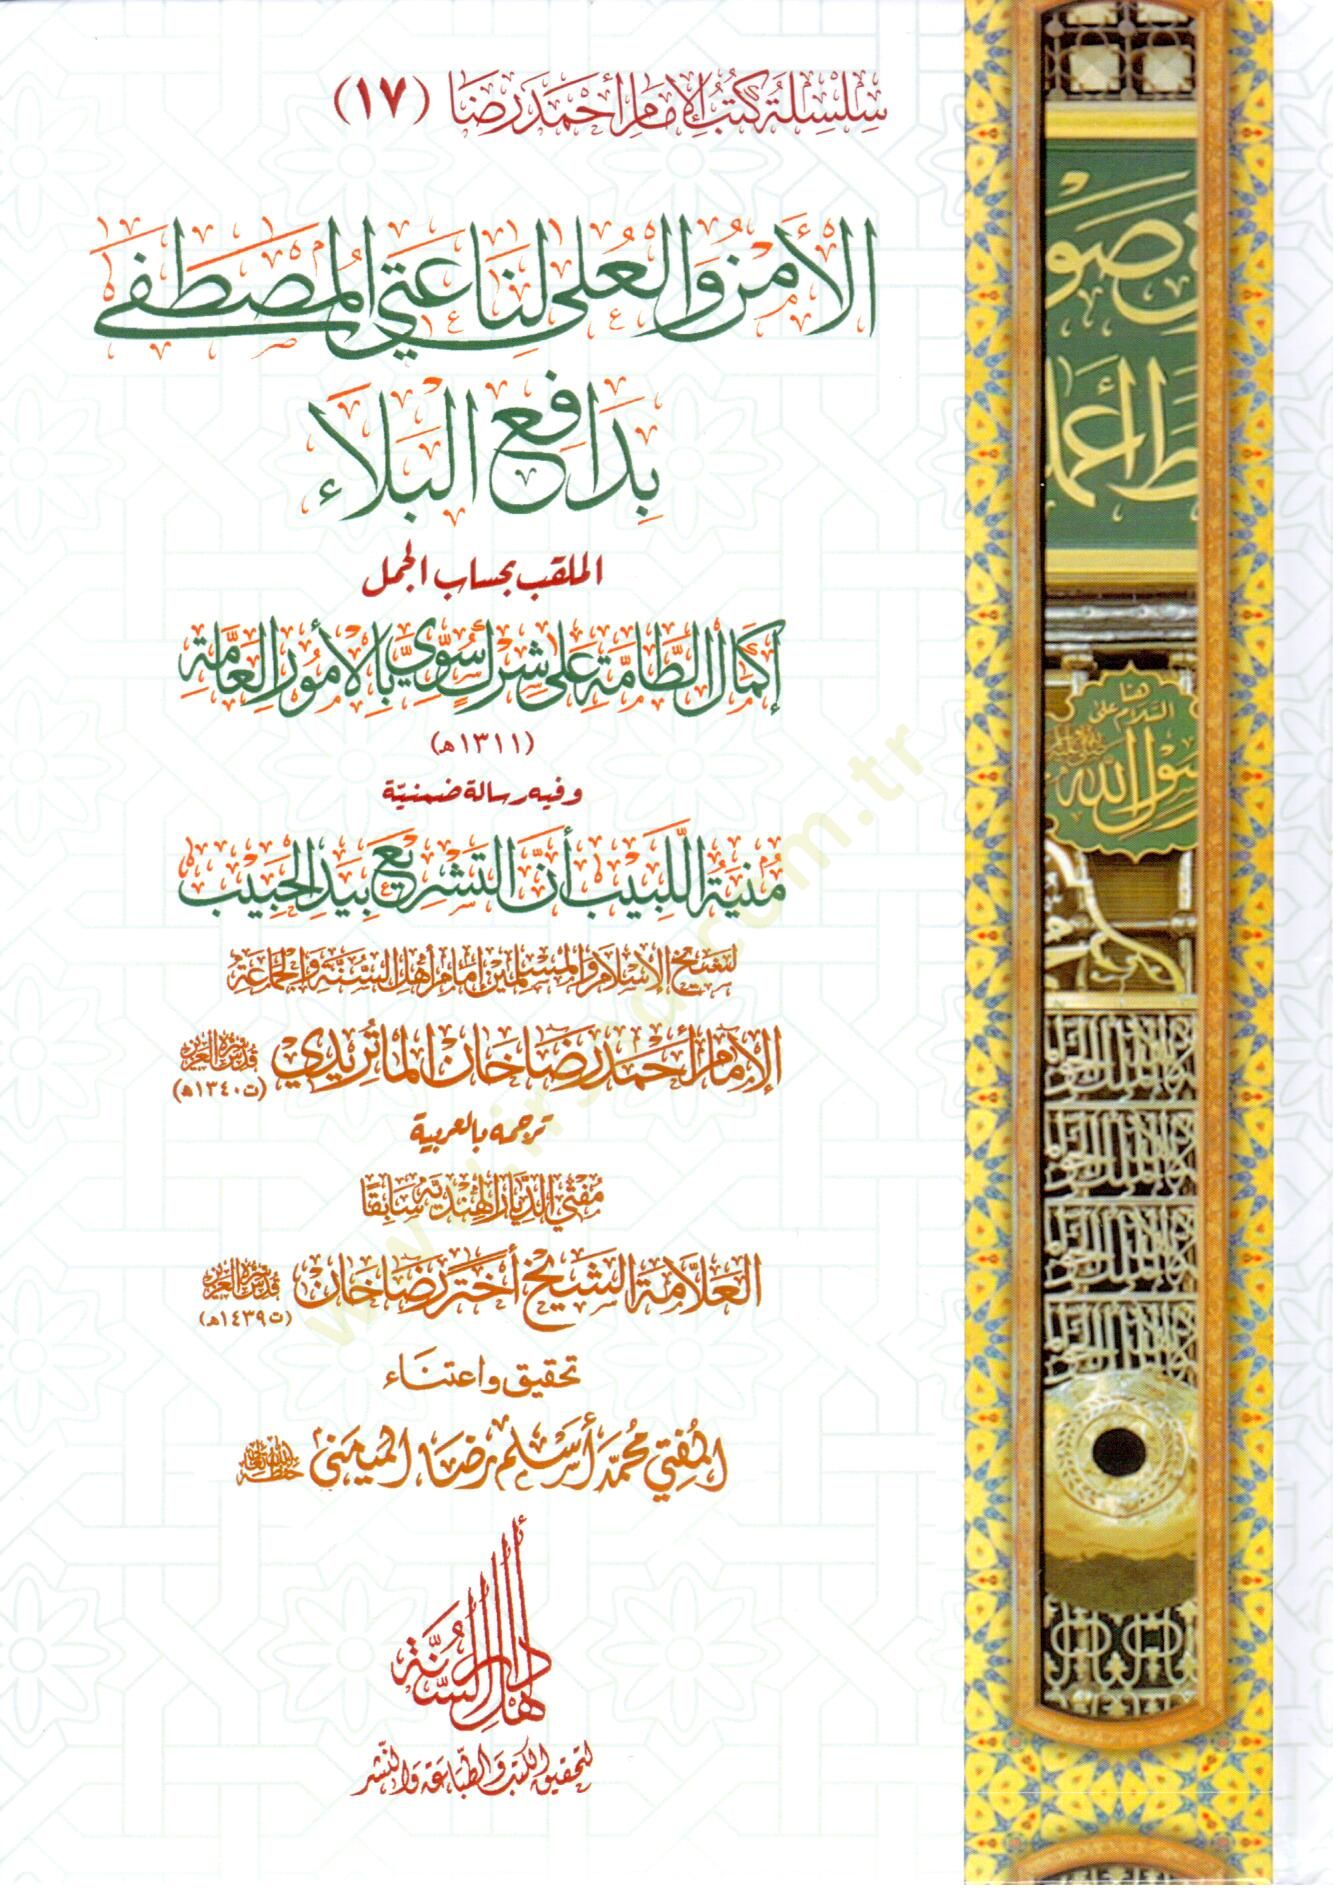 سلسلة كتب الإمام أحمد رضا (١٧)
الأمن والعلى لناعتي المصطفى
بدافع البلاء
الملقب بحساب الجمل
إكمال الطامة على شرك سوي بالأمور العامة
(١٣١١هـ)
وفيه رسالة ضمنية
منية اللبيب أن التشريع بيد الحبيب
لشيخ الإسلام والمسلمين إمام أهل السنة والجماعة
الإمام أحمد رضا خان الماتريدي قدس سره العزيز
(ت١٣٤٠هـ)
ترجمه بالعربية
مفتي الديار الهندية سابقا
العلامة الشيخ أختر رضا خان قدس سره العزيز
(ت١٤٣٩هـ)
تحقيق واعتناء
المفتي محمد أسلم رضا الميمني حفظه الله تعالى
دار أهل السنة
لتحقيق الكتب والطباعة والنشر
السلام على
رسول الله